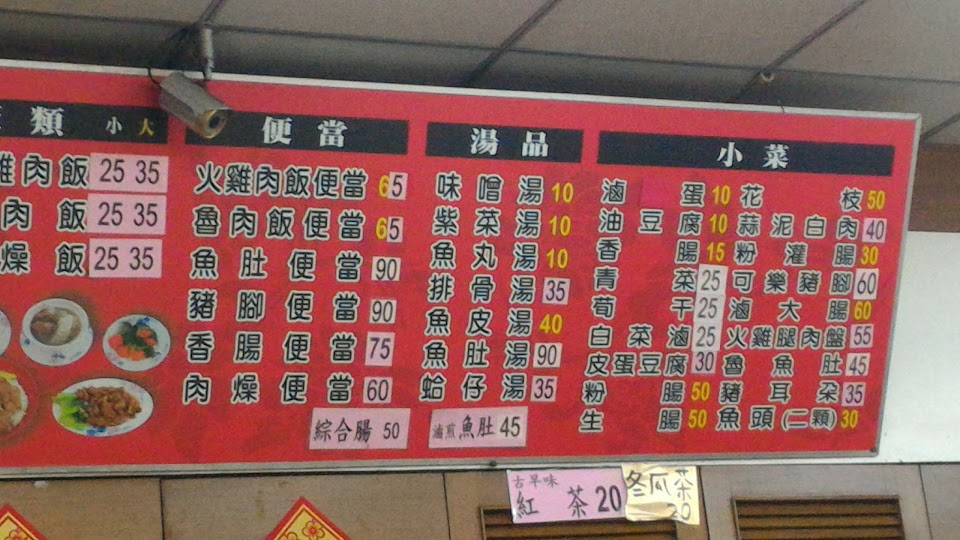 類 小 大
雞肉飯 25 35
肉飯 25 35
燥飯 25 35
便當
火雞肉飯便當 65
魯肉飯便當 65
魚肚便當 90
豬腳便當 90
香腸便當 75
肉燥便當 60
綜合腸 50
湯品
味噌湯 10
紫菜湯 10
魚丸湯 10
排骨湯 35
魚皮湯 40
魚肚湯 90
蛤仔湯 35
滷煎魚肚 45
小菜
滷蛋 10 花枝 50
油豆腐 10 蒜泥白肉 40
香腸 15 粉灌腸 30
青菜 25 可樂豬腳 60
荀干 25 滷大腸 60
白菜滷 25 火雞腿肉盤 55
皮蛋豆腐 30 魯魚肚 45
粉腸 50 豬耳朵 35
生腸 50 魚頭(二顆) 30
古早味
紅茶 20
冬瓜茶
20